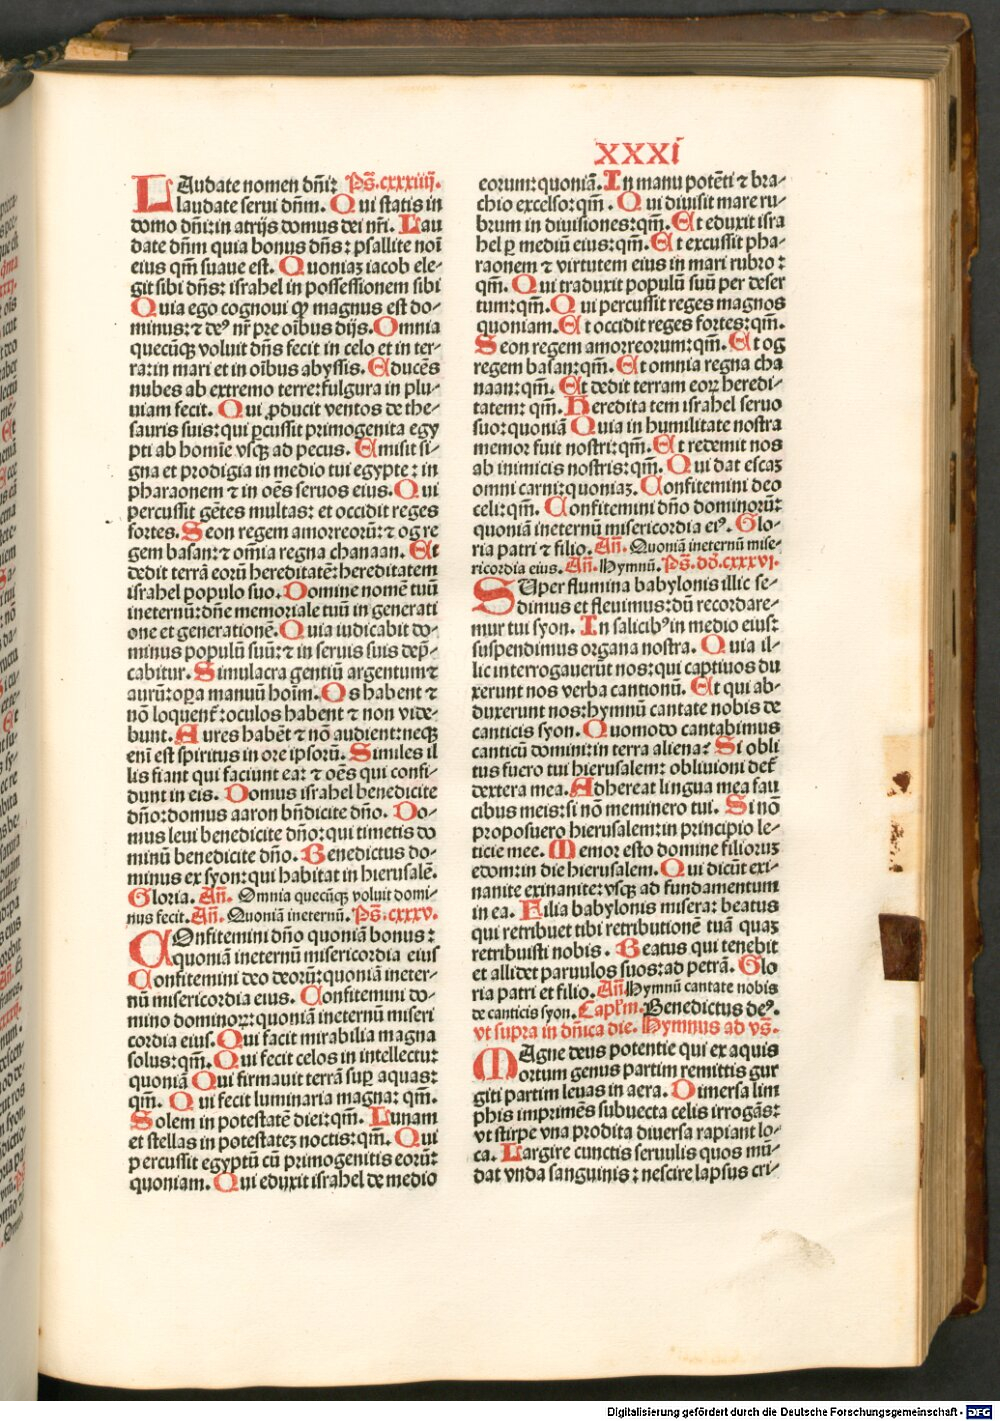 XXXI
LAudate nomen dñi: Ps̃.cxxxiiij.
laudate serui dñm. Qui statis in
domo dñi: in atrijs domus dei nr̃i. Lau
date dñm quia bonus dñs: psallite noĩ
eius qm̃ suaue est. Quoniaʒ iacob ele-
git sibi dñs: israhel in possessionem sibi
Quia ego cognoui ꝙ magnus est do-
minus: ⁊ deꝰ nr̃ pre oĩbus dijs. Omnia
quecũqʒ voluit dñs fecit in celo et in ter-
ra: in mari et in oĩbus abyssis. Educẽs
nubes ab extremo terre: fulgura in plu-
uiam fecit. Qui ꝓducit ventos de the-
sauris suis: qui ꝑcussit primogenita egy
pti ab homĩe vsqʒ ad pecus. Emisit si-
gna et prodigia in medio tui egypte: in
pharaonem ⁊ in oẽs seruos eius. Qui
percussit gẽtes multas: et occidit reges
fortes. Seon regem amorreorũ: ⁊ og re
gem basan: ⁊ om̃ia regna chanaan. Et
dedit terrã eorũ hereditatẽ: hereditatem
israhel populo suo. Domine nomẽ tuũ
ineternũ: dñe memoriale tuũ in generati
one et generationẽ. Quia iudicabit do-
minus populũ suũ: ⁊ in seruis suis dep̃-
cabitur. Simulacra gentiũ argentum ⁊
aurũ: oꝑa manuũ hoĩm. Os habent ⁊
nõ loquent̃: oculos habent ⁊ non vide-
bunt. Aures habẽt ⁊ nõ audient: neqʒ
enĩ est spiritus in ore ipsorũ. Similes il
lis fiant qui faciunt ea: ⁊ oẽs qui confi-
dunt in eis. Domus israhel benedicite
dño: domus aaron bñdicite dño. Do-
mus leui benedicite dño: qui timetis do
minũ benedicite dño. Benedictus do-
minus ex syon: qui habitat in hierusalẽ.
Gloria. Añ. Omnia quecũqʒ voluit domi-
nus fecit. Añ. Quoniã ineternũ. Ps̃.cxxxv.
COnfitemini dño quoniã bonus:
quoniã ineternũ misericordia eius
Confitemini deo deorũ: quoniã ineter-
nũ misericordia eius. Confitemini do-
mino dominoꝝ: quoniã ineternũ miseri
cordia eius. Qui facit mirabilia magna
solus: qm̃. Qui fecit celos in intellectu:
quoniã Qui firmauit terrã suꝑ aquas:
qm̃. Qui fecit luminaria magna: qm̃.
Solem in potestatẽ diei: qm̃. Lunam
et stellas in potestateʒ noctis: qm̃. Qui
percussit egyptũ cũ primogenitis eorũ:
quoniam. Qui eduxit israhel de medio
eorum: quoniã. In manu potẽti ⁊ bra-
chio excelso: qm̃. Qui diuisit mare ru-
brum in diuisiones: qm̃. Et eduxit isra
hel ꝑ mediũ eius: qm̃. Et excussit pha-
raonem ⁊ virtutem eius in mari rubro:
qm̃. Qui traduxit populũ suũ per deser
tum: qm̃. Qui percussit reges magnos
quoniam. Et occidit reges fortes: qm̃.
Seon regem amorreorum: qm̃. Et og
regem basan: qm̃. Et omnia regna cha
naan: qm̃. Et dedit terram eoꝝ heredi-
tatem: qm̃. Hereditatem israhel seruo
suo: quoniã Quia in humilitate nostra
memor fuit nostri: qm̃. Et redemit nos
ab inimicis nostris: qm̃. Qui dat escaʒ
omni carni: quoniaʒ. Confitemini deo
celi: qm̃. Confitemini dño dominorũ:
quoniã ineternũ misericordia eiꝰ. Glo-
ria patri ⁊ filio. Añ. Quoniã ineternũ mise-
ricordia eius. Añ. Hymnũ. Ps̃. dd̃.cxxxvi.
SUper flumina babylonis illic se-
dimus et fleuimus: dũ recordare-
mur tui syon. In salicibꝰ in medio eius:
suspendimus organa nostra. Quia il-
lic interrogauerũt nos: qui captiuos du
xerunt nos verba cantionũ. Et qui ab-
duxerunt nos: hymnũ cantate nobis de
canticis syon. Quomodo cantabimus
canticũ domini: in terra aliena? Si obli
tus fuero tui hierusalem: obliuioni det̃
dextera mea. Adhereat lingua mea fau
cibus meis: si nõ meminero tui. Si nõ
proposuero hierusalem: in principio le-
ticie mee. Memor esto domine filioruʒ
edom: in die hierusalem. Qui dicũt exi-
nanite exinanite: vsqʒ ad fundamentum
in ea. Filia babylonis misera: beatus
qui retribuet tibi retributionẽ tuã quaʒ
retribuisti nobis. Beatus qui tenebit
et allidet paruulos suos: ad petrã. Glo
ria patri et filio. Añ Hymnũ cantate nobis
de canticis syon. Capl'm. Benedictus deꝰ.
vt supra in dñica die. Hymnus ad vs̃.
MAgne deus potentie qui ex aquis
ortum genus partim remittis gur
giti partim leuas in aera. Dimersa lim
phis imprimẽs subuecta celis irrogãs:
vt stirpe vna prodita diuersa rapiant lo-
ca. Largire cunctis seruulis quos mũ-
dat vnda sanguinis: nescire lapsus cri-
Digitalisierung gefördert durch die Deutsche Forschungsgemeinschaft - DFG